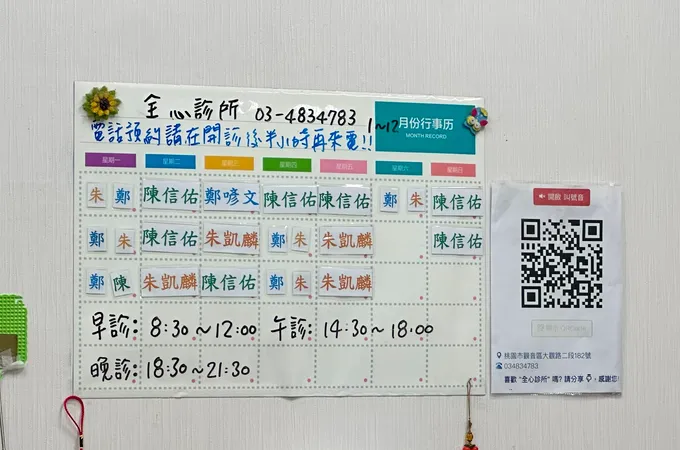 全心診所 03-4834783
1~12月份行事历
MONTH RECORD
電話預約請在開診後半小時再來電!!
星期一 星期二 星期三 星期四 星期五 星期六 星期日
朱 鄭 陳信佑 鄭喭文 陳信佑 陳信佑 鄭 朱 陳信佑
鄭 朱 陳信佑 朱凱麟 鄭 朱 朱凱麟 陳信佑
鄭 陳 朱凱麟 陳信佑 鄭 朱 朱凱麟
早診: 8:30~12:00 午診: 14:30~18:00
晚診: 18:30~21:30
開啟 叫號音
桃園市觀音區大觀路二段182號
034834783
喜歡 "全心診所" 嗎? 請分享,感謝您!